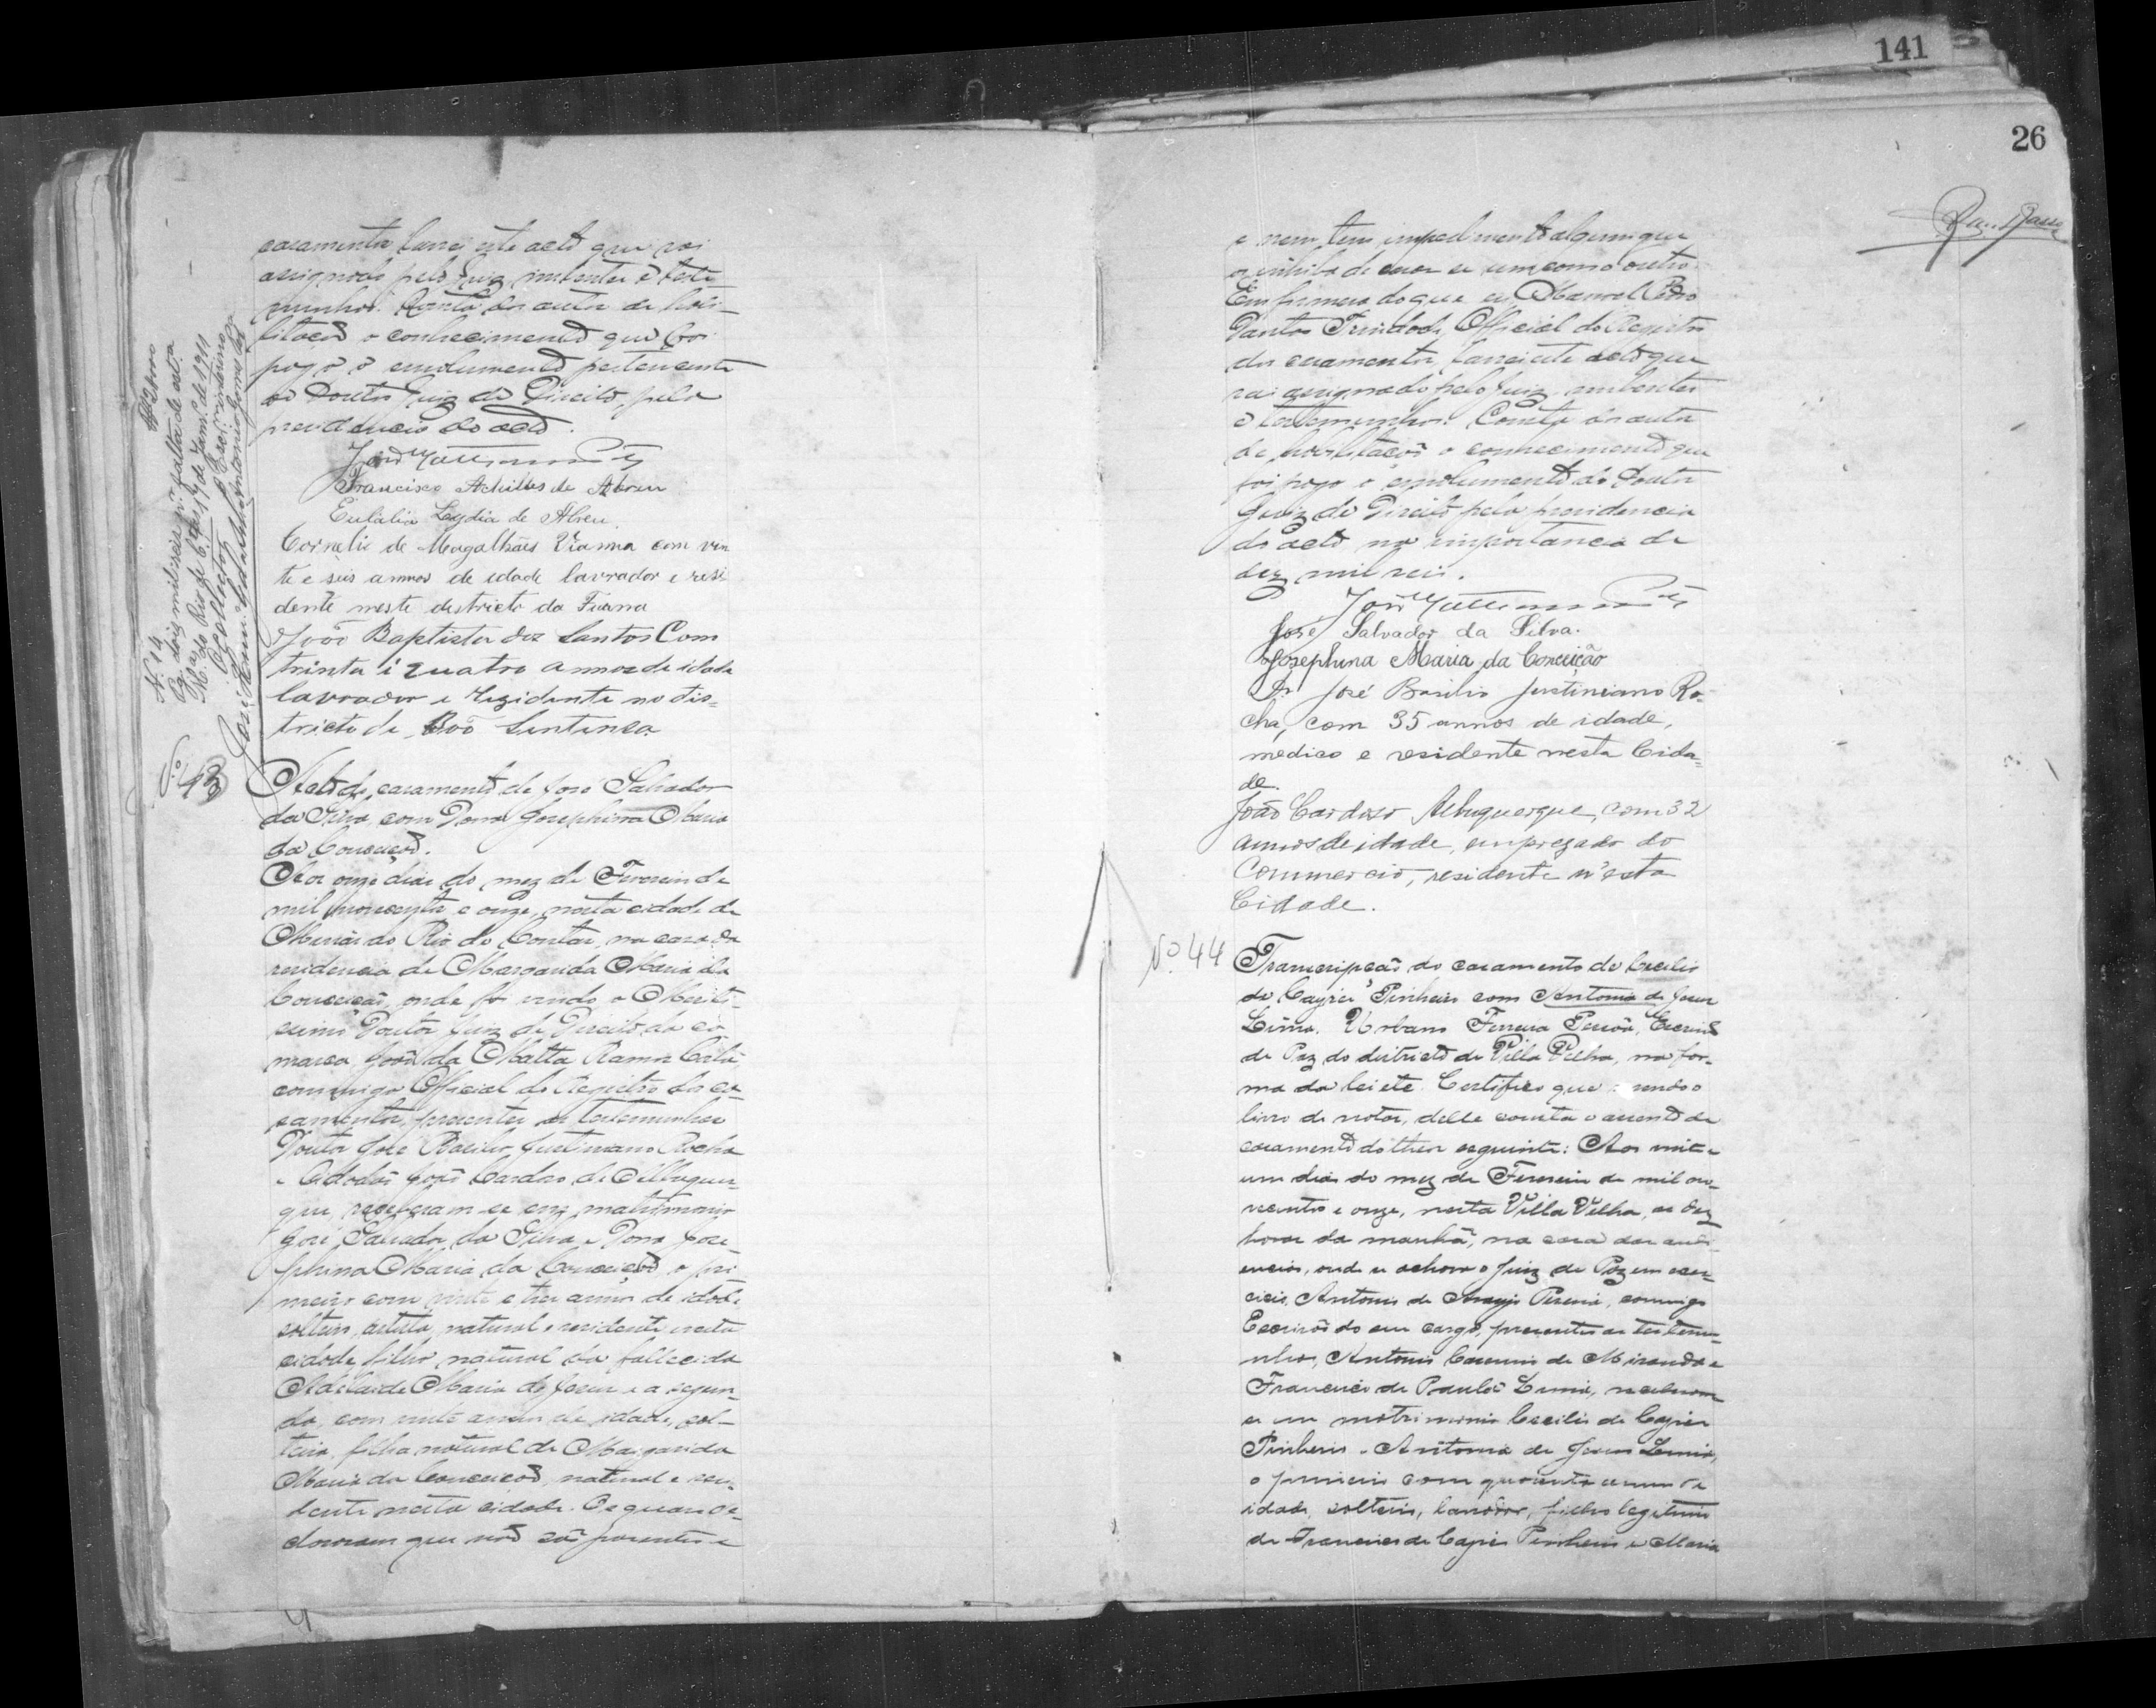 141
26
casamentos lancei este acto que vai
assignado pelo Juiz, nubentes e teste
munhas. Consta dos autos de habi-
litação o conhecimento que foi
pago o emolumento pertencente
ao Doutor Juiz de Direito, pela
presidencia do acto.
Francisco Achilles de Abreu
Eulalia Lydia de Abreu.
Cornelio de Magalhães Vianna com vin
te e seis annos de idade lavrador e resi
dente neste districto da Furna
João Baptista dos Santos Com
trinta i quatro annos de idade
lavrador e rezidente no dis=
tricto de Bôa Sentença
N. 14
Pg. dois mil reis pr. falta de estª.
Mas. do Rio de Ctas 19 de Janrº. de 1911
O Collector O Escrm. interino
Nº 43
Acto do casamento de José Salvador
da Silva, com Dona Josephina Maria
da Conceição.
Aos onze dias do mez de Fevereiro de
mil novecentos e onze, nesta cidade de
Minas do Rio de Contas, na casa da
residencia de Margarida Maria da
Conceição, onde foi vindo o Meritis-
simo Doutor Juiz de Direito da co
marca João da Matta Ramos
commigo Official do Registro dos ca
samentos, presentes as testemunhas
Doutor José Basilio Justiniano Rocha
e Cidadão João Cardoso de Albuquer-
que, receberam-se em matrimonio
José Salvador da Silva e Dona Jose-
phina Maria da Conceição o pri
meiro com vinte e tres annos de idade
solteiro, artista, natural e residente nesta
cidade, filho natural da fallecida
Adelaide Maria de Jesus e a segun-
da, com vinte annos de idade, sol-
teira, filha natural de Margarida
Maria da Conceição, natural e resi-
dente nesta cidade. Os quaes de-
clararam que não são parentes e
e nem tem impedimento algum que
os inhiba de casar se um com o outro.
Em firmeza do que eu, Manoel Pedro
Dantas Trindade, Official do Registro
dos casamentos, lancei este acto que
vai assignado pelo Juiz, nubentes
e testemunhas. Consta dos autos
de habilitação o conhecimento que
foi pago o emolumento do Doutor
Juiz de Direito pela presidencia
do acto na importancia de
dez mil reis.
José Salvador da Silva.
Josephina Maria da Conceição
Dr José Basilio Justiniano Ro-
cha, com 35 annos de idade,
medico e residente nesta Cida=
de.
João Cardoso Albuquerque, com 32
annos de idade, empregado do
Commercio, residente n'esta
Cidade.
Nº 44
Transcripção do casamento de Cecilio
de Pinheiro com Antonia de Jesus
Lima. Urbano Ferreira Escrivão
de Paz do districto de Villa Velha, na for-
ma da lei etc. Certifico que vendo o
livro de notas, delle consta o assento de
casamento do theor seguinte: Aos vinte e
um dias do mez de Fevereiro de mil no-
vecentos e onze, nesta Villa Velha, as dez
horas da manhã, na casa das audi-
encias, onde se achava o Juiz de Paz em exer-
cicio, Antonio de Araujo Pereira, commigo
Escrivão do seu cargo, presentes as testemu-
nhas, Antonio de Miranda e
Francisco de Paula Lima, receberam
se em matrimonio Cecilio de
Pinheiro e Antonia de Jesus Lima,
o primeiro com quarenta annos de
idade, solteiro, lavrador, filho legitimo
de Francisco de Pinheiro e Maria